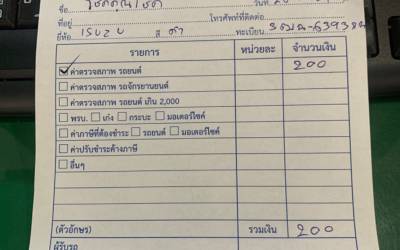 ชื่อ โชคคูณโชค วันที่ 20
ที่อยู่ โทรศัพท์ที่ติดต่อ
ยี่ห้อ ISUZU สี ดำ ทะเบียน
รายการ หน่วยละ จำนวนเงิน
✓ ค่าตรวจสภาพ รถยนต์ 200
☐ ค่าตรวจสภาพ รถจักรยานยนต์
☐ ค่าตรวจสภาพ รถยนต์ เกิน 2,000
☐ พรบ. ☐ เก๋ง ☐ กระบะ ☐ มอเตอร์ไซค์
☐ ค่าภาษีที่ต้องชำระ ☐ รถยนต์ ☐ มอเตอร์ไซค์
☐ ค่าปรับชำระค้างภาษี
☐ อื่นๆ
(ตัวอักษร) รวมเงิน 200
ผู้รับรถ